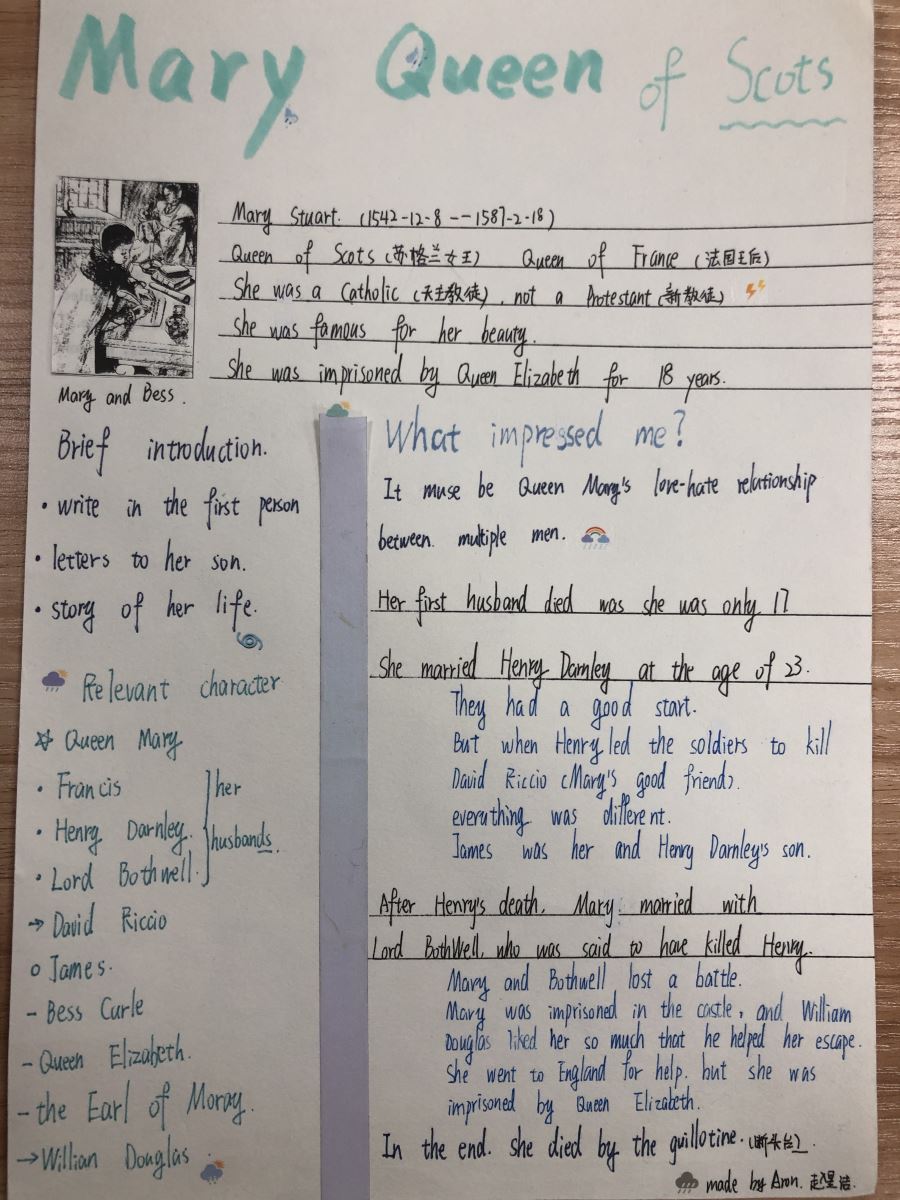 Mary Queen of Scots
Mary Stuart. (1542-12-8 -- 1587-2-18)
Queen of Scots (苏格兰女王) Queen of France (法国王后)
She was a Catholic (天主教徒), not a Protestant (新教徒)
She was famous for her beauty.
She was imprisoned by Queen Elizabeth for 18 years.
Mary and Bess.
Brief introduction.
• write in the first person
• letters to her son.
• story of her life.
Relevant character
☆ Queen Mary
• Francis
• Henry Darnley.
• Lord Bothwell.
her
husbands.
→ David Riccio
o James.
- Bess Curle
- Queen Elizabeth.
- the Earl of Moray.
→ Willian Douglas
What impressed me?
It muse be Queen Mary's love-hate relationship
between multiple men.
Her first husband died was she was only 17
She married Henry Darnley at the age of 23.
They had a good start.
But when Henry led the soldiers to kill
David Riccio (Mary's good friend),
everything was different.
James was her and Henry Darnley's son.
After Henry's death, Mary married with
Lord BothWell, who was said to have killed Henry.
Mary and Bothwell lost a battle.
Mary was imprisoned in the castle, and William
Douglas liked her so much that he helped her escape.
She went to England for help. but she was
imprisoned by Queen Elizabeth.
In the end. she died by the guillotine. (断头台).
made by Aron.